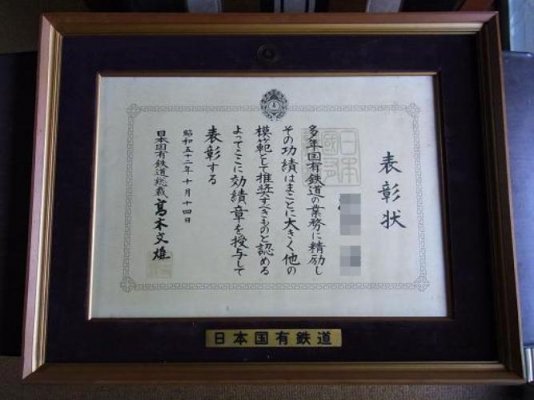 表彰状
多年国有鉄道の業務に精励し
その功績はまことに大きく他の
模範として推奨すべきものと認める
よってここに功績章を授与して
表彰する
昭和五十二年十月十四日
日本国有鉄道総裁 高木文雄
日本国有鉄道